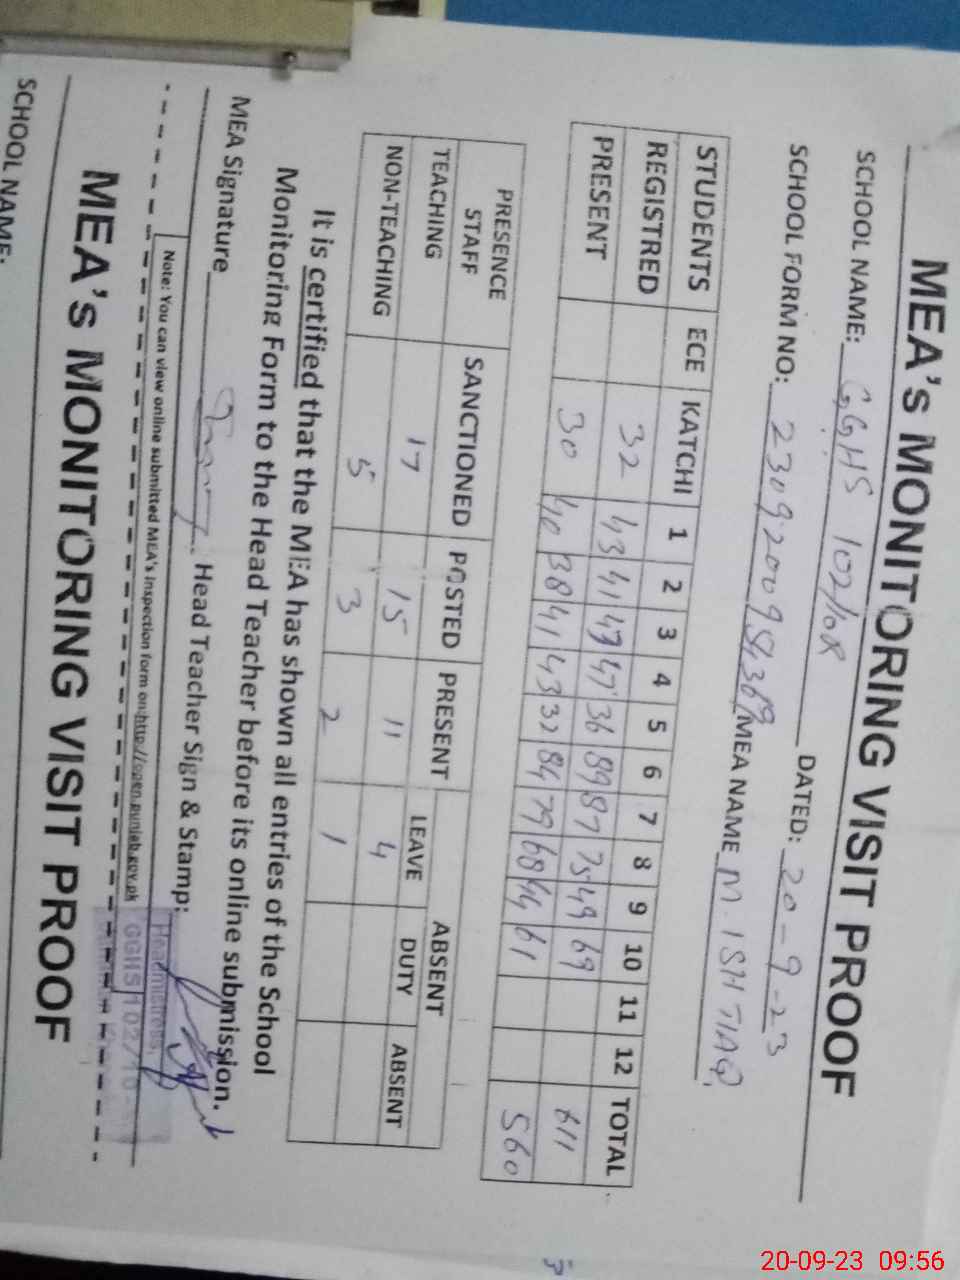 MEA's MONITORING VISIT PROOF
SCHOOL NAME: GGHS 102/10R DATED: 20-9-23
SCHOOL FORM NO: MEA NAME M. ISHTIAQ
STUDENTS ECE KATCHI 1 2 3 4 5 6 7 8 9 10 11 12 TOTAL
REGISTRED 32 43 41 43 47 36 89 87 75 49 69 611
PRESENT 30 40 38 41 43 32 84 79 68 44 61 560
PRESENCE STAFF SANCTIONED POSTED PRESENT ABSENT
LEAVE DUTY ABSENT
TEACHING 17 15 11 4
NON-TEACHING 5 3 2 1
It is certified that the MEA has shown all entries of the School
Monitoring Form to the Head Teacher before its online submission.
MEA Signature Head Teacher Sign & Stamp:
Headmistress,
GGHS 102/10
Note: You can view online submitted MEA's inspection form on http://open.punjab.gov.pk
MEA's MONITORING VISIT PROOF
SCHOOL NAME:
20-09-23 09:56